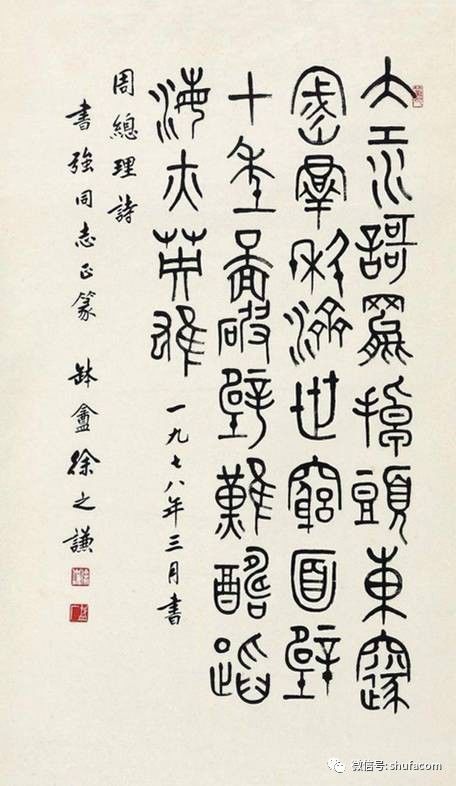 大江歌罷掉頭東邃
密羣科濟世窮面壁
十年圖破壁難酬蹈
海亦英雄 一九七八年三月書
周總理詩
書強同志正篆 缽盦徐之謙
微信号: shufacom